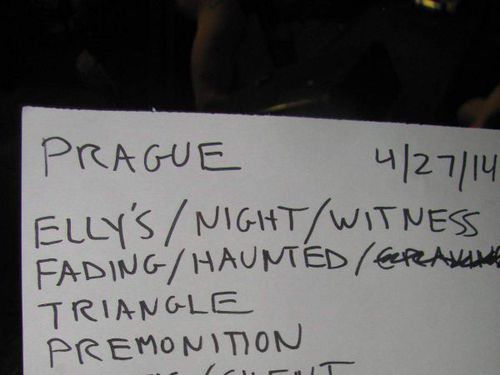 PRAGUE 4/27/14
ELLY'S/NIGHT/WITNESS
FADING/HAUNTED/
TRIANGLE
PREMONITION